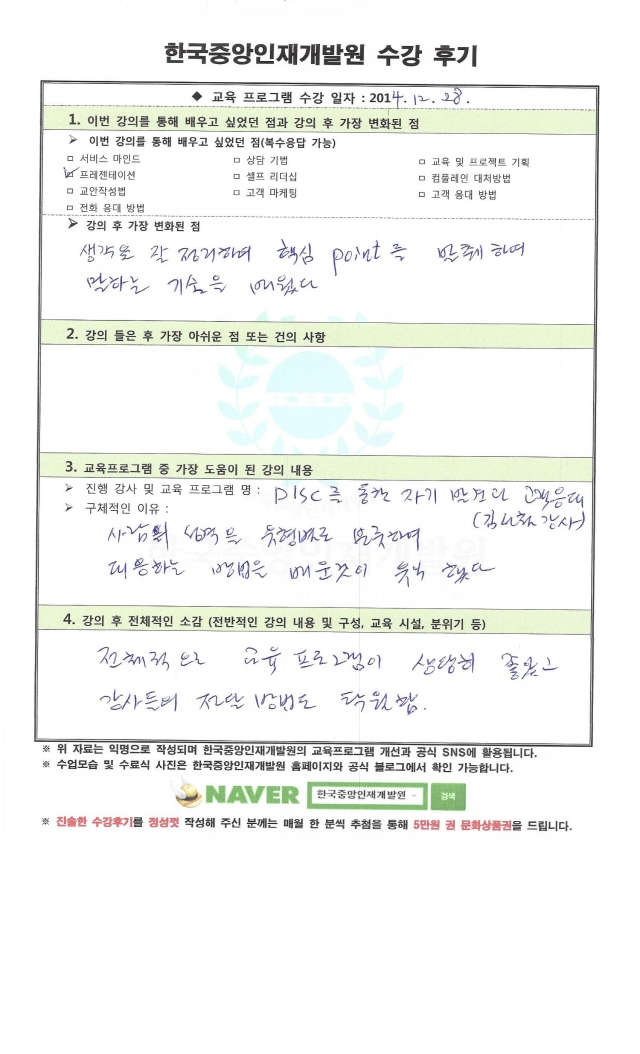 한국중앙인재개발원 수강 후기
◆ 교육 프로그램 수강 일자 : 2014. 12. 28.
1. 이번 강의를 통해 배우고 싶었던 점과 강의 후 가장 변화된 점
➢ 이번 강의를 통해 배우고 싶었던 점(복수응답 가능)
□ 서비스 마인드 □ 상담 기법 □ 교육 및 프로젝트 기획
☑ 프레젠테이션 □ 셀프 리더십 □ 컴플레인 대처방법
□ 교안작성법 □ 고객 마케팅 □ 고객 응대 방법
□ 전화 응대 방법
➢ 강의 후 가장 변화된 점
생각을 잘 정리하며 핵심 point를 맞춰 하며
말하는 기술을 배웠다
2. 강의 들은 후 가장 아쉬운 점 또는 건의 사항
3. 교육프로그램 중 가장 도움이 된 강의 내용
➢ 진행 강사 및 교육 프로그램 명 : DISC를 통한 자기 발견과 고객응대
➢ 구체적인 이유 : 강사)
사람의 성격을 유형별로 분류하며
대응하는 방법을 배운것이 유익 했다
4. 강의 후 전체적인 소감 (전반적인 강의 내용 및 구성, 교육 시설, 분위기 등)
전체적으로 교육 프로그램이 상당히 좋았고
강사들의 전달 방법도 탁월함.
※ 위 자료는 익명으로 작성되며 한국중앙인재개발원의 교육프로그램 개선과 공식 SNS에 활용됩니다.
※ 수업모습 및 수료식 사진은 한국중앙인재개발원 홈페이지와 공식 블로그에서 확인 가능합니다.
NAVER 한국중앙인재개발원 검색
※ 진솔한 수강후기를 정성껏 작성해 주신 분께는 매월 한 분씩 추첨을 통해 5만원 권 문화상품권을 드립니다.